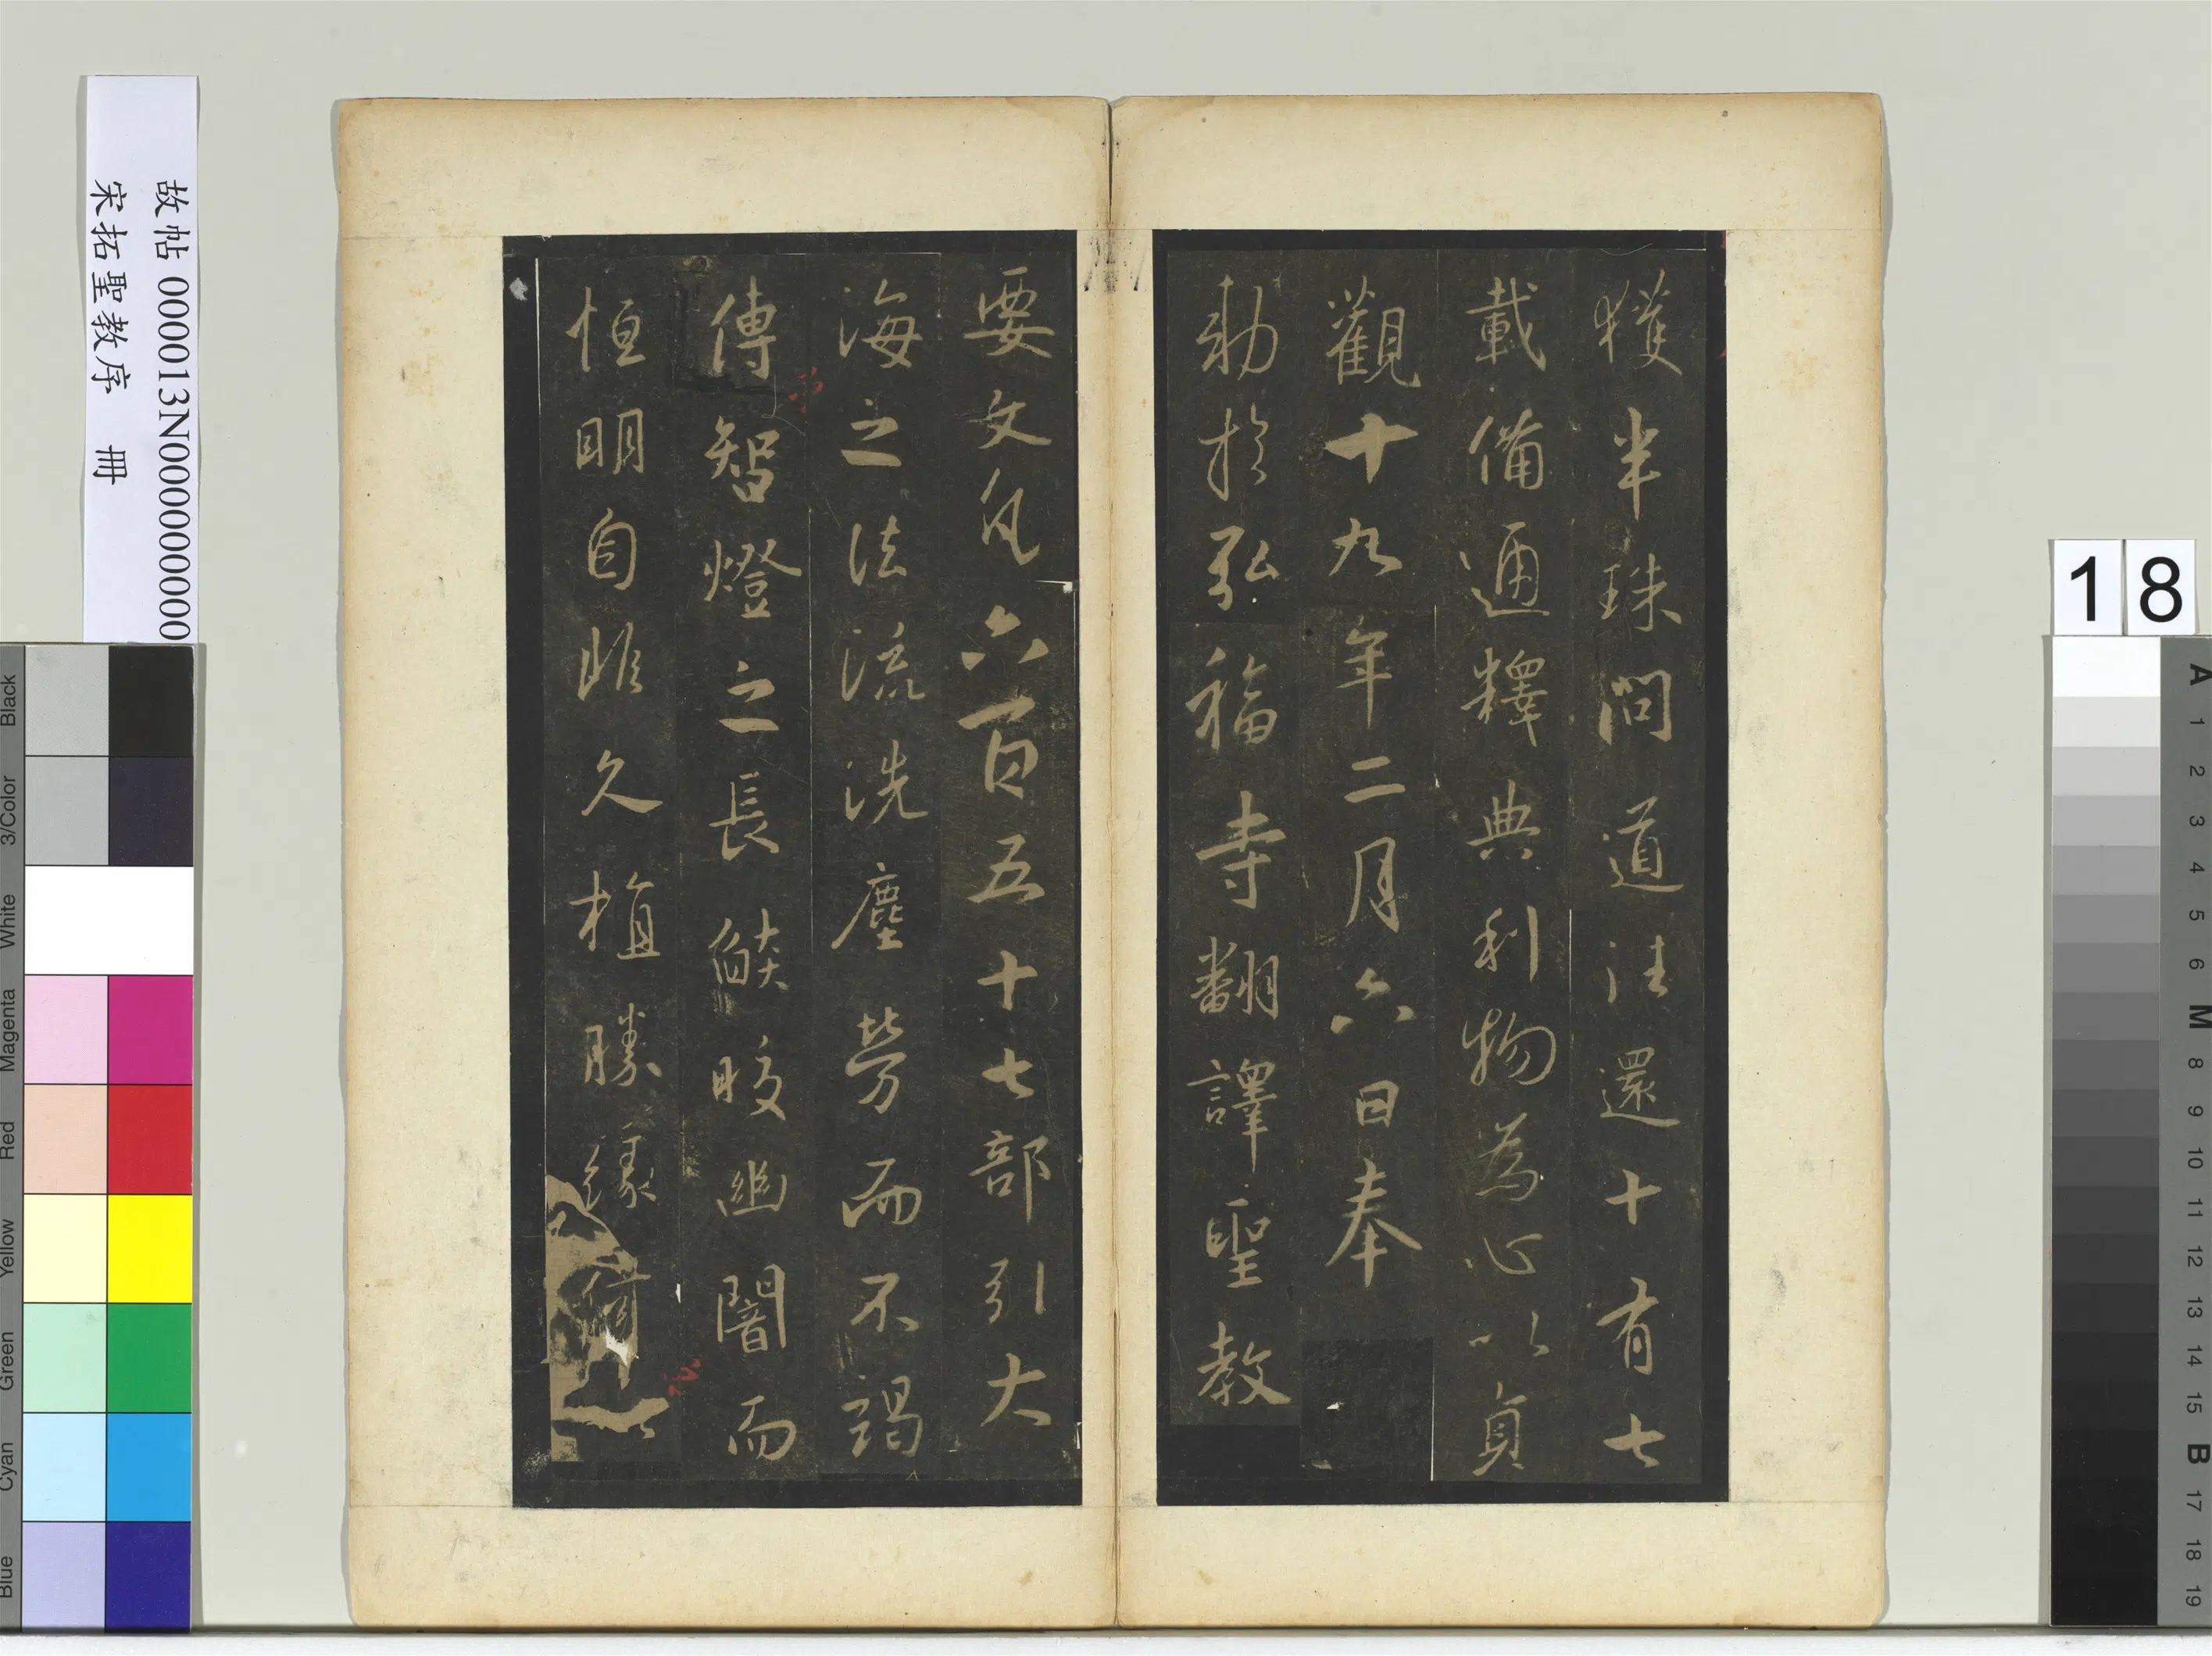 獲半珠問道往還十有七
載備通釋典利物為心以貞
觀十九年二月六日奉
勅於弘福寺翻譯聖教
要文凡六百五十七部引大
海之法流洗塵勞而不竭
傳智燈之長焰皎幽闇而
恒明自非久植勝緣何以
故帖
宋拓聖教序 冊
18
Black
3/Color
White
Magenta
Red
Yellow
Green
Cyan
Blue
A 1 2 3 4 5 6 M 8 9 10 11 12 13 14 15 B 17 18 19